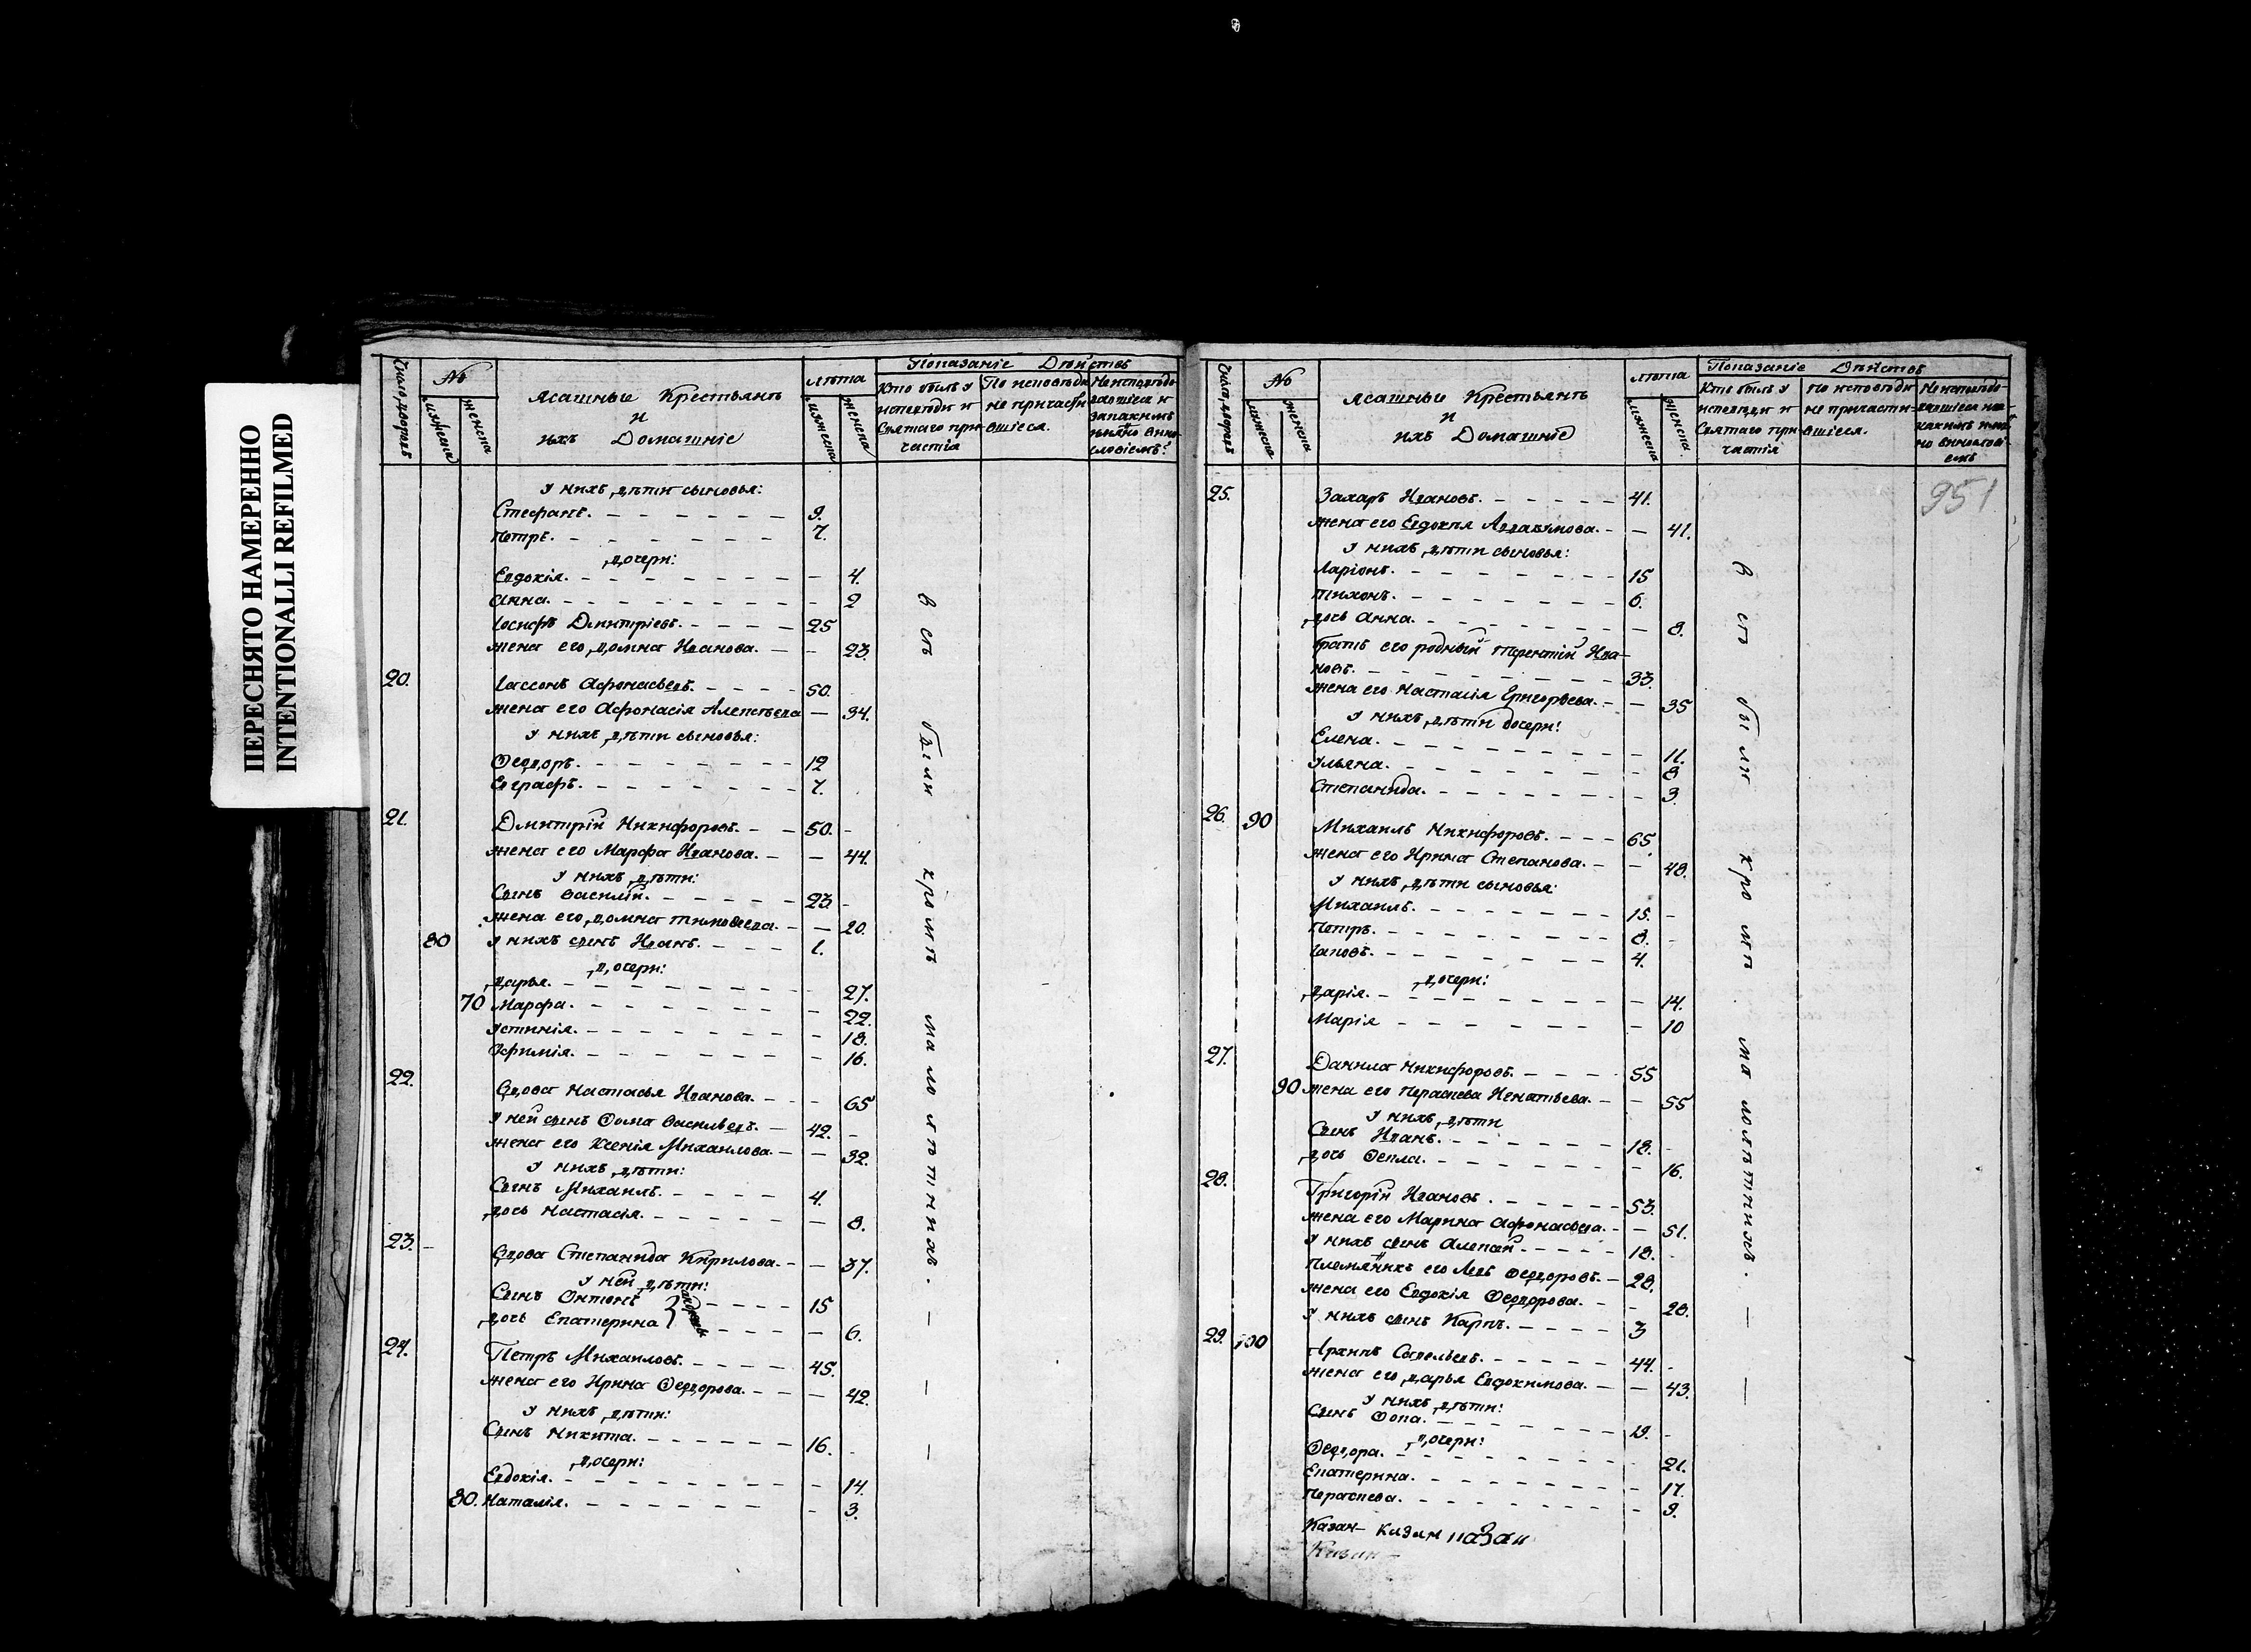 ПЕРЕСНЯТО НАМЕРЕННО
INTENTIONALLI REFILMED
Число дворовъ
№
мужеска
женска
Ясашные Крестьянъ
и
ихъ Домашніе
лѣта
мужеска
женска
Показаніе Дѣйствъ
Кто былъ у исповѣди и святаго причастія
По исповѣди не причастившіеся.
у нихъ дѣти сыновья:
Стефанъ. 9.
Петръ. 7.
дочери:
Евдокія. — 4.
Анна. — 2
Іосифъ Дмитріевъ. 25
жена его Домна Иванова. — 23.
20. Іассонъ Афонасьевъ. 50.
жена его Афонасія Алексѣева — 34.
у нихъ дѣти сыновья:
Ѳедоръ. 12
Евграфъ. 7.
21. Дмитрій Никифоровъ. 50.
жена его Марфа Иванова. — 44.
у нихъ дѣти:
Сынъ Василій. 23.
жена его Домна Тимоѳеева. — 20.
80 у нихъ сынъ Иванъ. 1.
дочери:
Дарья. — 27.
70 Марфа. — 22.
Устинія. — 18.
Эфимія. — 16.
22. Вдова Настасья Иванова. — 65
У ней сынъ Ѳома Васильевъ. 42.
жена его Ксенія Михаилова. — 32.
У нихъ дѣти:
Сынъ Михаилъ. 4.
дочь Настасія. — 8.
23. Вдова Степанида Кирилова. — 37.
у ней дѣти:
Сынъ Онтонъ 15
дочь Екатерина — 6.
24. Петръ Михаиловъ. 45.
жена его Ирина Ѳедорова. — 42.
у нихъ дѣти:
Сынъ Никита. 16.
дочери:
Евдокія. — 14.
80. Наталія. — 3.
всѣ были кромѣ малолѣтнихъ.
Число дворовъ
№
мужеска
женска
Ясашные Крестьянъ
и
ихъ Домашніе
лѣта
мужеска
женска
Показаніе Дѣйствъ
Кто былъ у исповѣди и Святаго причастія
По исповѣди не причастившіеся.
951
25. Захаръ Ивановъ. 41.
жена его Евдокія Аввакумова. — 41.
у нихъ дѣти сыновья:
Ларіонъ. 15
Тихонъ. 6.
дочь Анна. — 8.
братъ его родный Терентій Ива-
новъ. 33.
жена его Настасія Григорьева. — 35
У нихъ дѣти дочери:
Елена. — 11.
Ульяна. — 8
Степанида. — 3.
26. 90 Михаилъ Никифоровъ. 65
жена его Ирина Степанова. — 48.
У нихъ дѣти сыновья:
Михаилъ. 15.
Петръ. 8.
Іаковъ. 4.
дочери:
Дарія. — 14.
Марія — 10
27. Данила Никифоровъ. 55
90 жена его Параскева Игнатьева. — 55
У нихъ дѣти
Сынъ Иванъ. 18.
дочь Ѳекла. — 16.
28. Григорій Ивановъ. 53.
жена его Марина Афонасьева. — 51.
У нихъ сынъ Алексѣй. 18.
Племянникъ его Левъ Ѳедоровъ. 28.
жена его Евдокія Ѳедорова. — 28.
у нихъ сынъ Карпъ. 3
29. 100 Архипъ Савельевъ. 44.
жена его Дарья Евдокимова. — 43.
У нихъ дѣти:
Сынъ Ѳока. 19.
дочери:
Ѳедора. — 21.
Екатерина. — 17.
Параскева. — 9.
Казан- казан казан
Казан-
всѣ были кромѣ малолѣтнихъ.